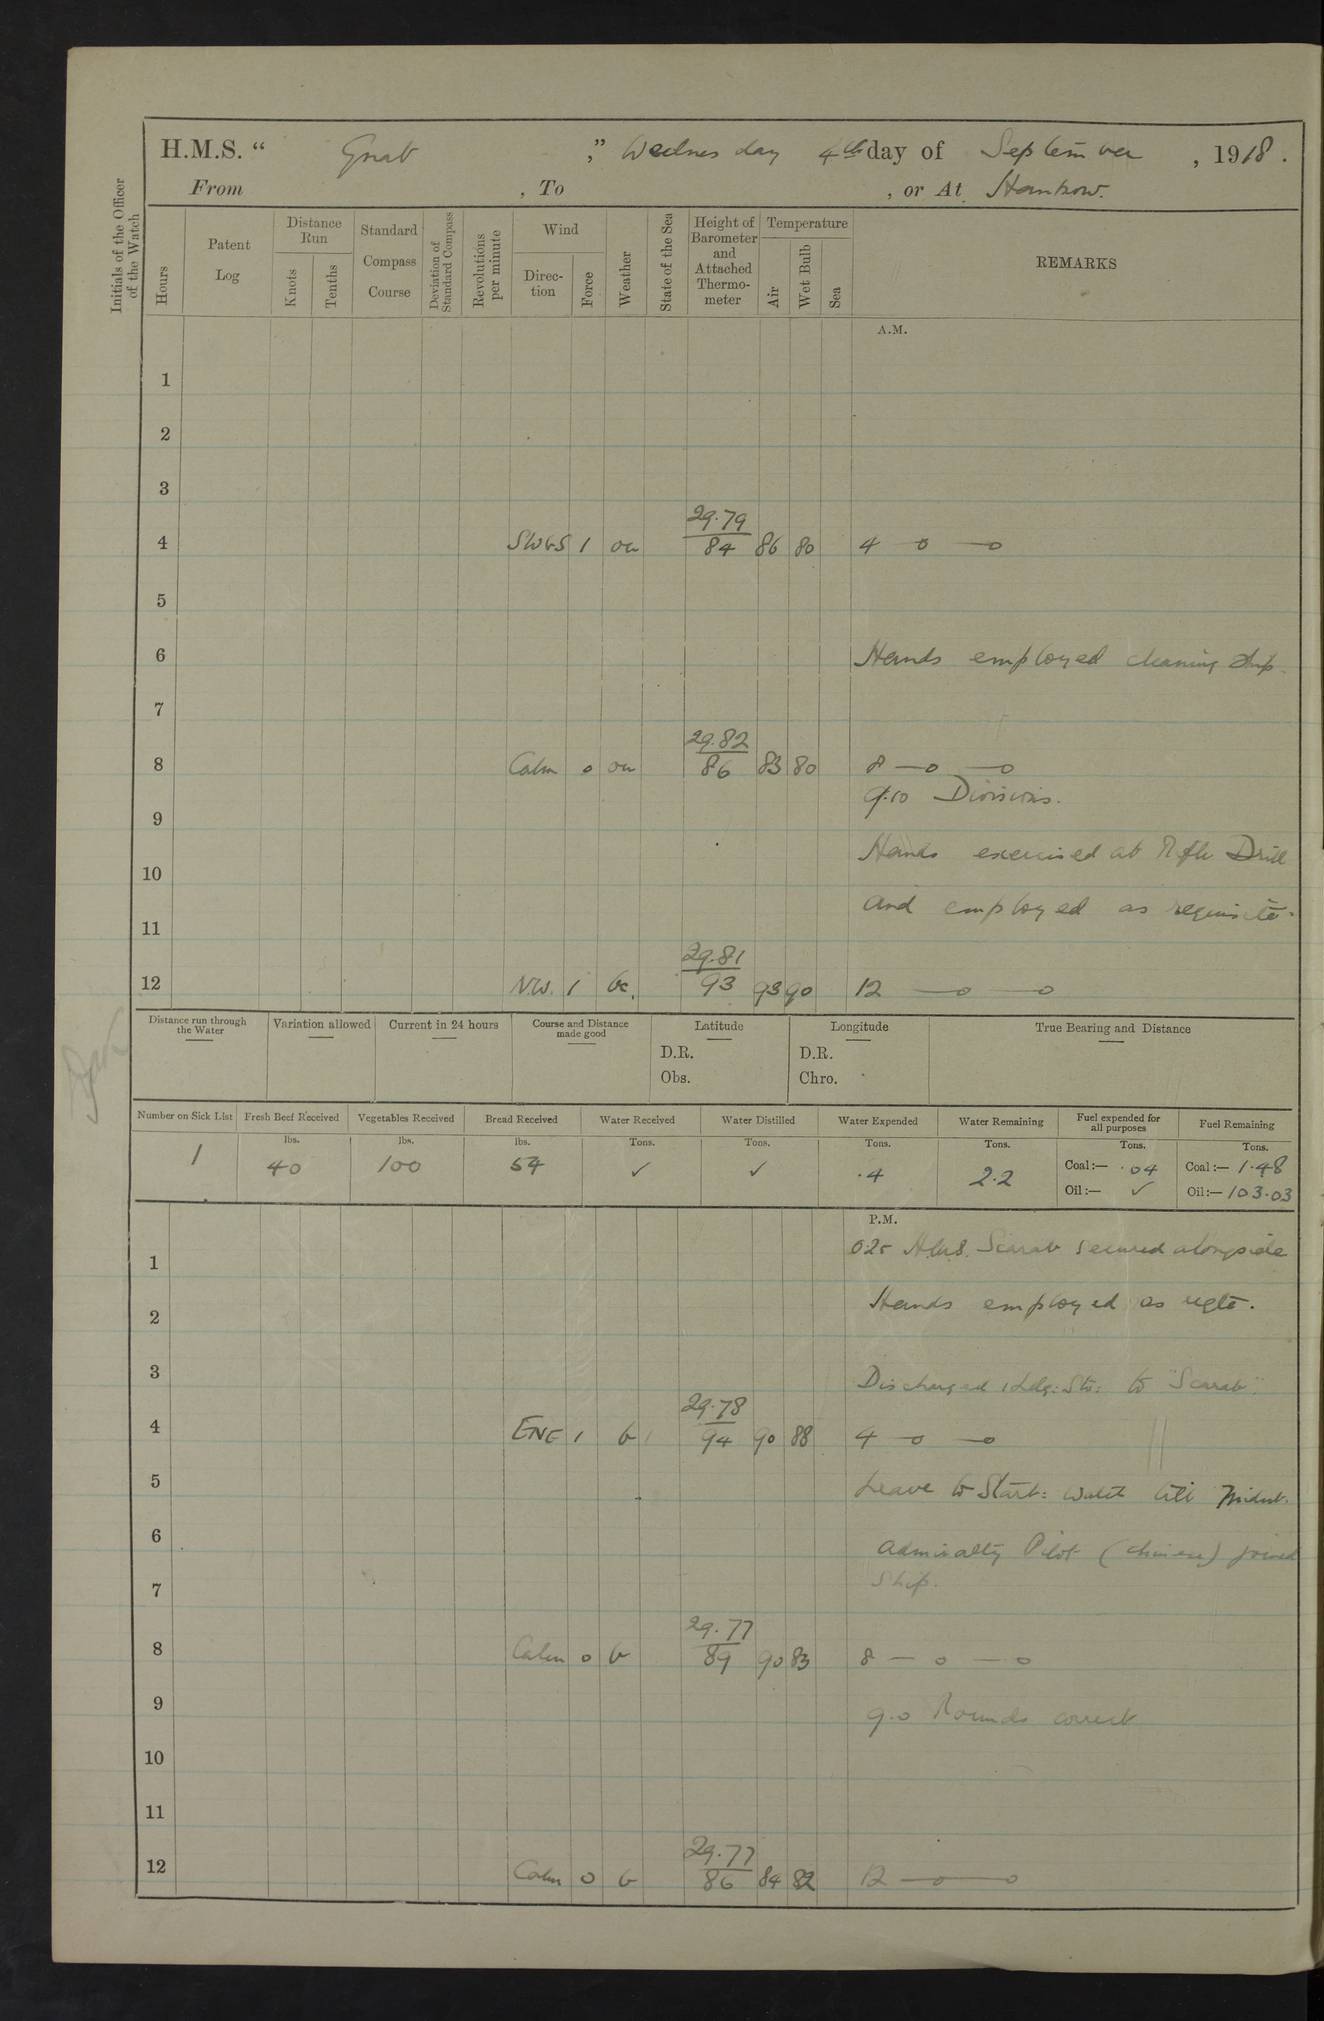 H.M.S. “ Gnat ,” Wednesday 4th day of September , 1918.
From , To , or At Hankow.
Initials of the Officer of the Watch
Hours
Patent Log
Distance Run
Knots
Tenths
Standard Compass Course
Deviation of Standard Compass
Revolutions per minute
Wind
Direc-tion
Force
Weather
State of the Sea
Height of Barometer and Attached Thermo-meter
Temperature
Air
Wet Bulb
Sea
REMARKS
A.M.
1
2
3
29.79
4 SWbS 1 ou 84 86 80 4 —o —o
5
6 Hands employed cleaning ship.
7
29.82
8 Calm 0 ou 86 83 80 8 —o —o
9.10 Divisions.
9
Hands exercised at Rifle Drill
10
and employed as requisite.
11
29.81
12 N.W. 1 bc. 93 93 90 12 —o —o
Distance run through the Water
Variation allowed
Current in 24 hours
Course and Distance made good
Latitude
D.R.
Obs.
Longitude
D.R.
Chro.
True Bearing and Distance
Number on Sick List Fresh Beef Received Vegetables Received Bread Received Water Received Water Distilled Water Expended Water Remaining Fuel expended for all purposes Fuel Remaining
lbs. lbs. lbs. Tons. Tons. Tons. Tons. Tons. Tons.
1 40 100 54 ✓ ✓ .4 2.2 Coal:— .04 Coal:— 1.48
Oil:— ✓ Oil:— 103.03
P.M.
0.25 H.M.S. Scarab secured alongside
1
Hands employed as reqte.
2
3
Discharged 1 Ldg: Sto: to "Scarab".
29.78
4 ENE 1 b 94 90 88 4 —o —o
5 Leave to Starb: watch till Midnt.
6 Admiralty Pilot (Chinese) joined
7 ship.
29.77
8 Calm 0 b 89 90 83 8 — o — o
9 9.0 Rounds correct
10
11
29.77
12 Calm 0 b 86 84 82 12 —o —o